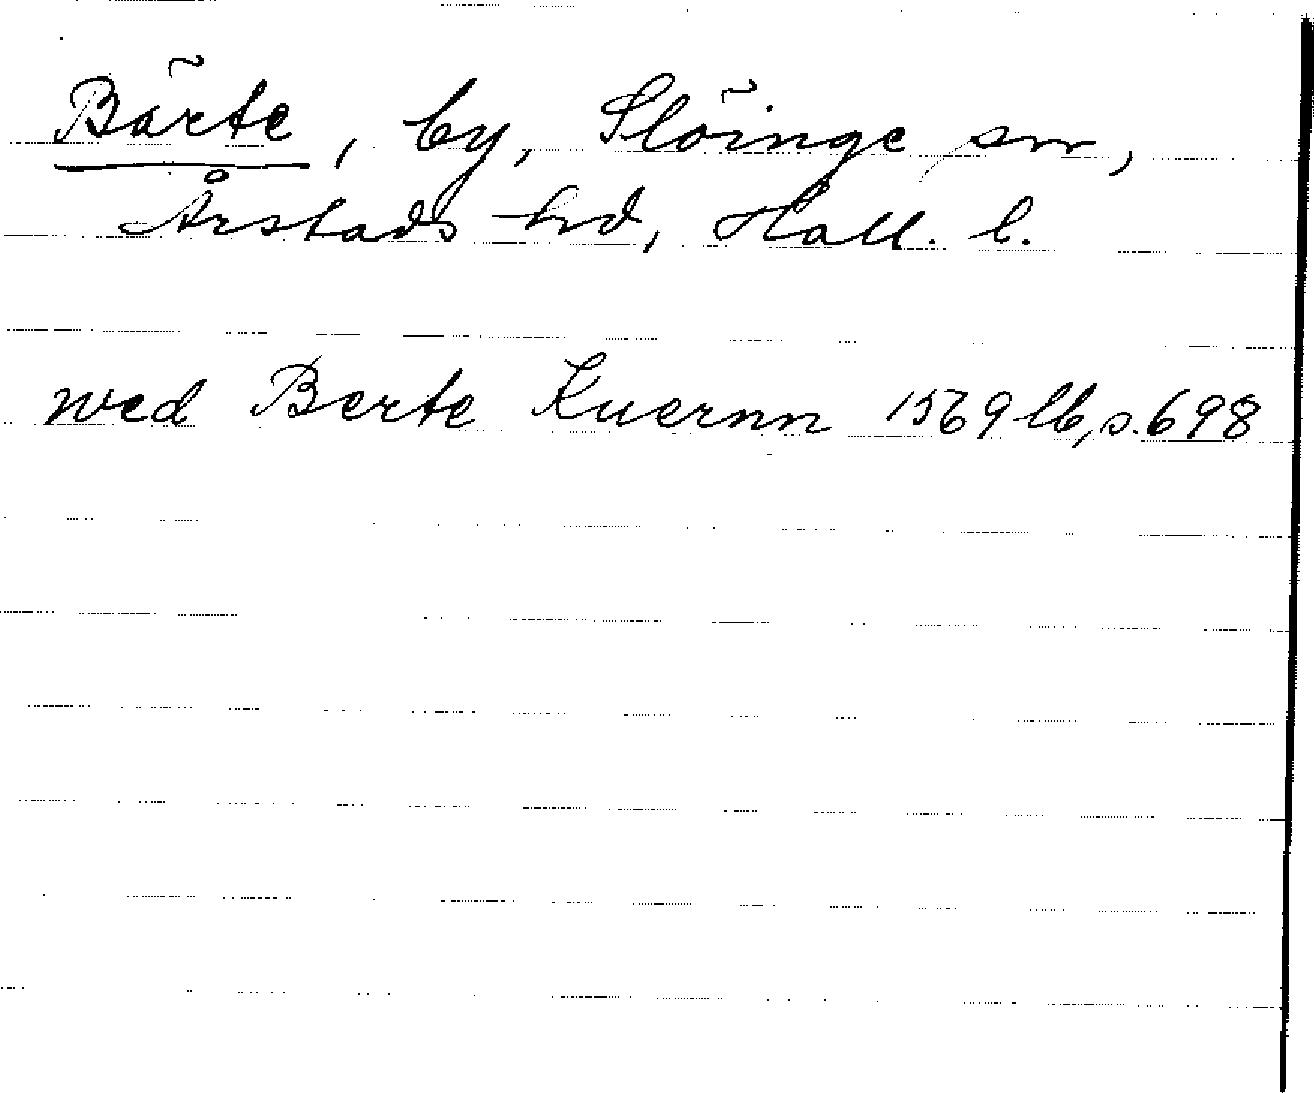 Bärte, by, Slöinge sn,
Årstads hd, Hall. l.
wed Berte Kuernn 1569 lb, s. 698